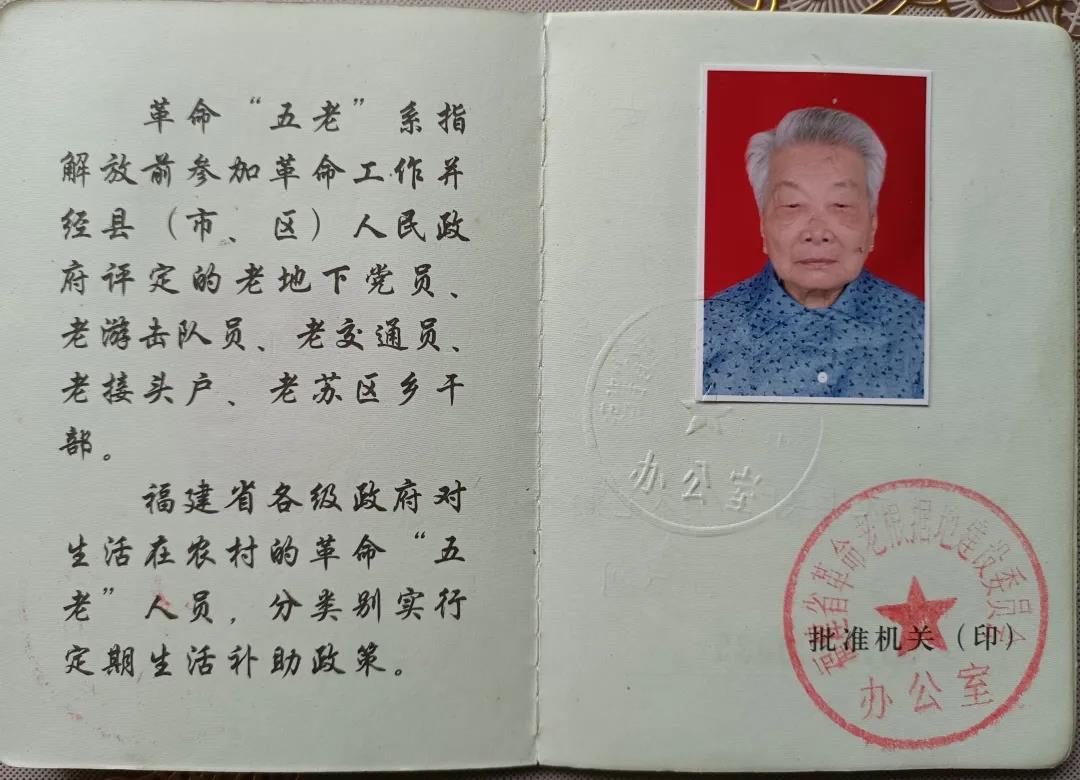 革命“五老”系指
解放前参加革命工作并
经县（市、区）人民政
府评定的老地下党员、
老游击队员、老交通员、
老接头户、老苏区乡干
部。
福建省各级政府对
生活在农村的革命“五
老”人员，分类别实行
定期生活补助政策。
办公室
福建省革命老根据地建设委员会
批准机关（印）
办公室